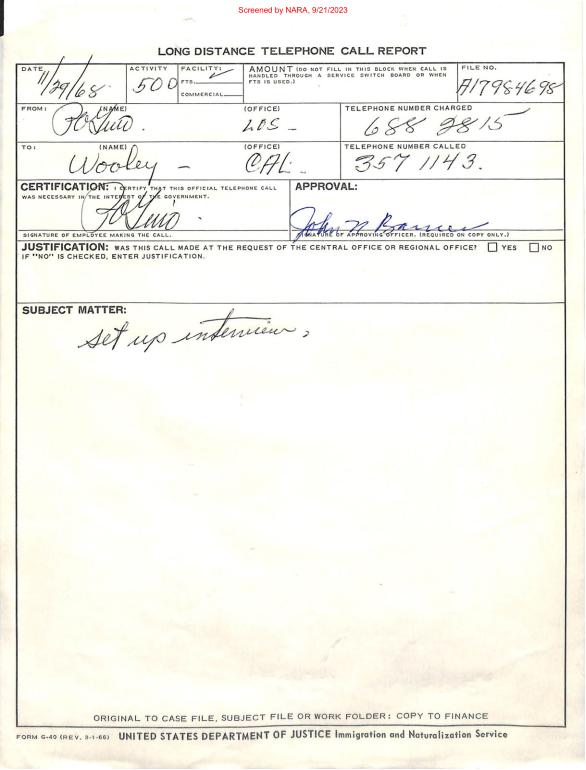 Screened by NARA, 9/21/2023
LONG DISTANCE TELEPHONE CALL REPORT
DATE 11/29/68
ACTIVITY 500
FACILITY: ✓
FTS
COMMERCIAL
AMOUNT (DO NOT FILL IN THIS BLOCK WHEN CALL IS
HANDLED THROUGH A SERVICE SWITCH BOARD OR WHEN
FTS IS USED.)
FILE NO.
A17984698
FROM: (NAME)
(OFFICE)
LOS -
TELEPHONE NUMBER CHARGED
688 2815
TO: (NAME)
Wooley -
(OFFICE)
CAL -
TELEPHONE NUMBER CALLED
357 1143.
CERTIFICATION: I CERTIFY THAT THIS OFFICIAL TELEPHONE CALL
WAS NECESSARY IN THE INTEREST OF THE GOVERNMENT.
SIGNATURE OF EMPLOYEE MAKING THE CALL.
APPROVAL:
John N
SIGNATURE OF APPROVING OFFICER. (REQUIRED ON COPY ONLY.)
JUSTIFICATION: WAS THIS CALL MADE AT THE REQUEST OF THE CENTRAL OFFICE OR REGIONAL OFFICE? YES NO
IF "NO" IS CHECKED, ENTER JUSTIFICATION.
SUBJECT MATTER:
set up interview,
ORIGINAL TO CASE FILE, SUBJECT FILE OR WORK FOLDER: COPY TO FINANCE
FORM G-40 (REV. 3-1-66) UNITED STATES DEPARTMENT OF JUSTICE Immigration and Naturalization Service